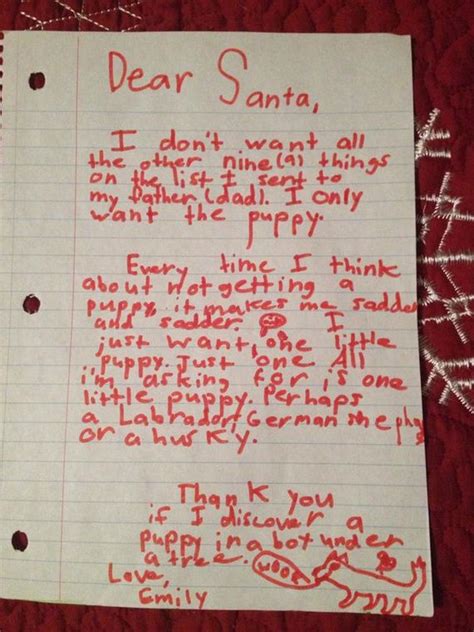 Dear Santa,
I don't want all
the other nine(9) things
on the list I sent to
my father (dad). I only
want the puppy.
Every time I think
about not getting a
puppy, it makes me sadder
and sadder I
just want, one little
puppy. Just one All
i'm asking for is one
little puppy. Perhaps
a Labrador, German shepha
or a husky.
Thank you
if I discover a
puppy in a box under
a tree. woof
Love,
Emily